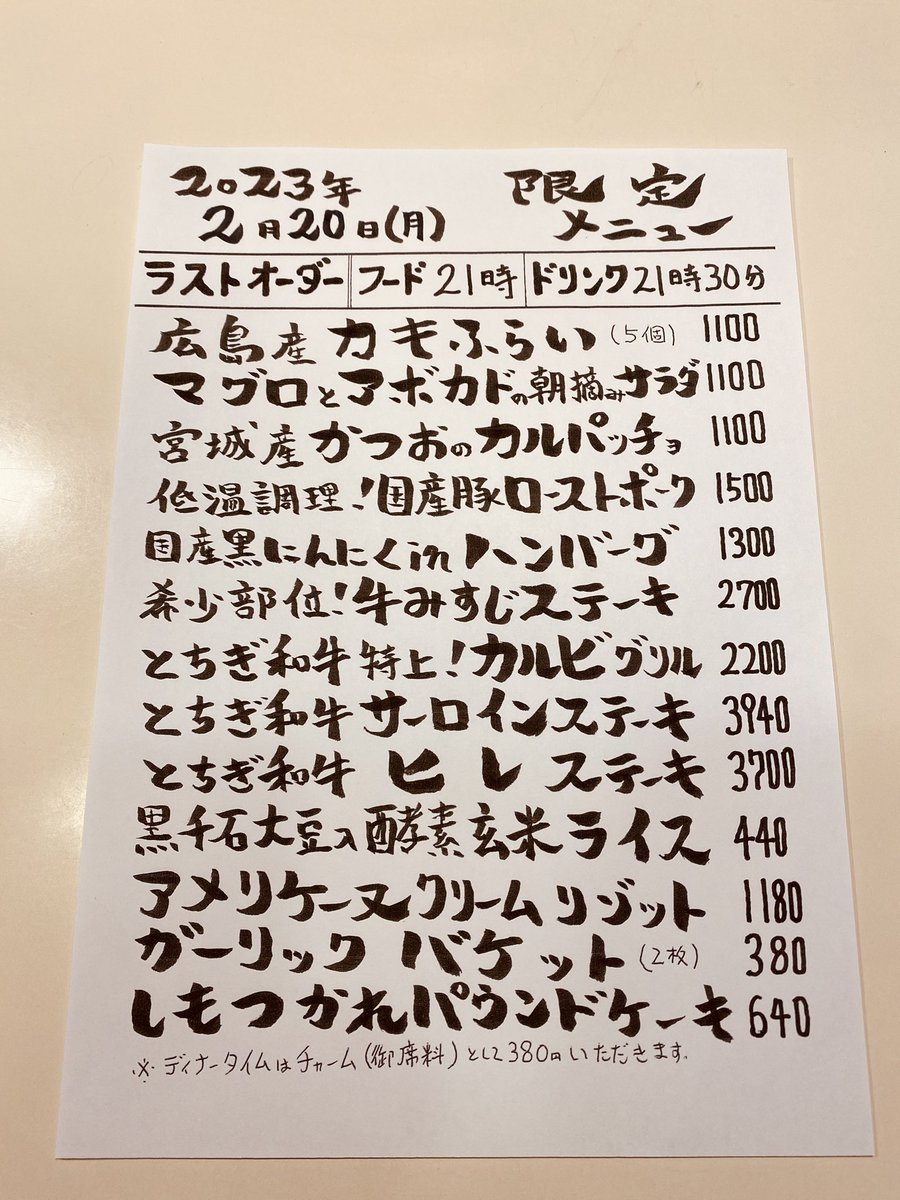 2023年 限定
2月20日(月) メニュー
ラストオーダー フード21時 ドリンク21時30分
広島産カキふらい(5個) 1100
マグロとアボカドの朝摘みサラダ 1100
宮城産かつおのカルパッチョ 1100
低温調理!国産豚ローストポーク 1500
国産黒にんにくinハンバーグ 1300
希少部位!牛みすじステーキ 2700
とちぎ和牛特上!カルビグリル 2200
とちぎ和牛サーロインステーキ 3940
とちぎ和牛ヒレステーキ 3700
黒千石大豆入酵素玄米ライス 440
アメリケーヌクリームリゾット 1180
ガーリックバケット(2枚) 380
しもつかれパウンドケーキ 640
※ディナータイムはチャーム(御席料)として380円いただきます。